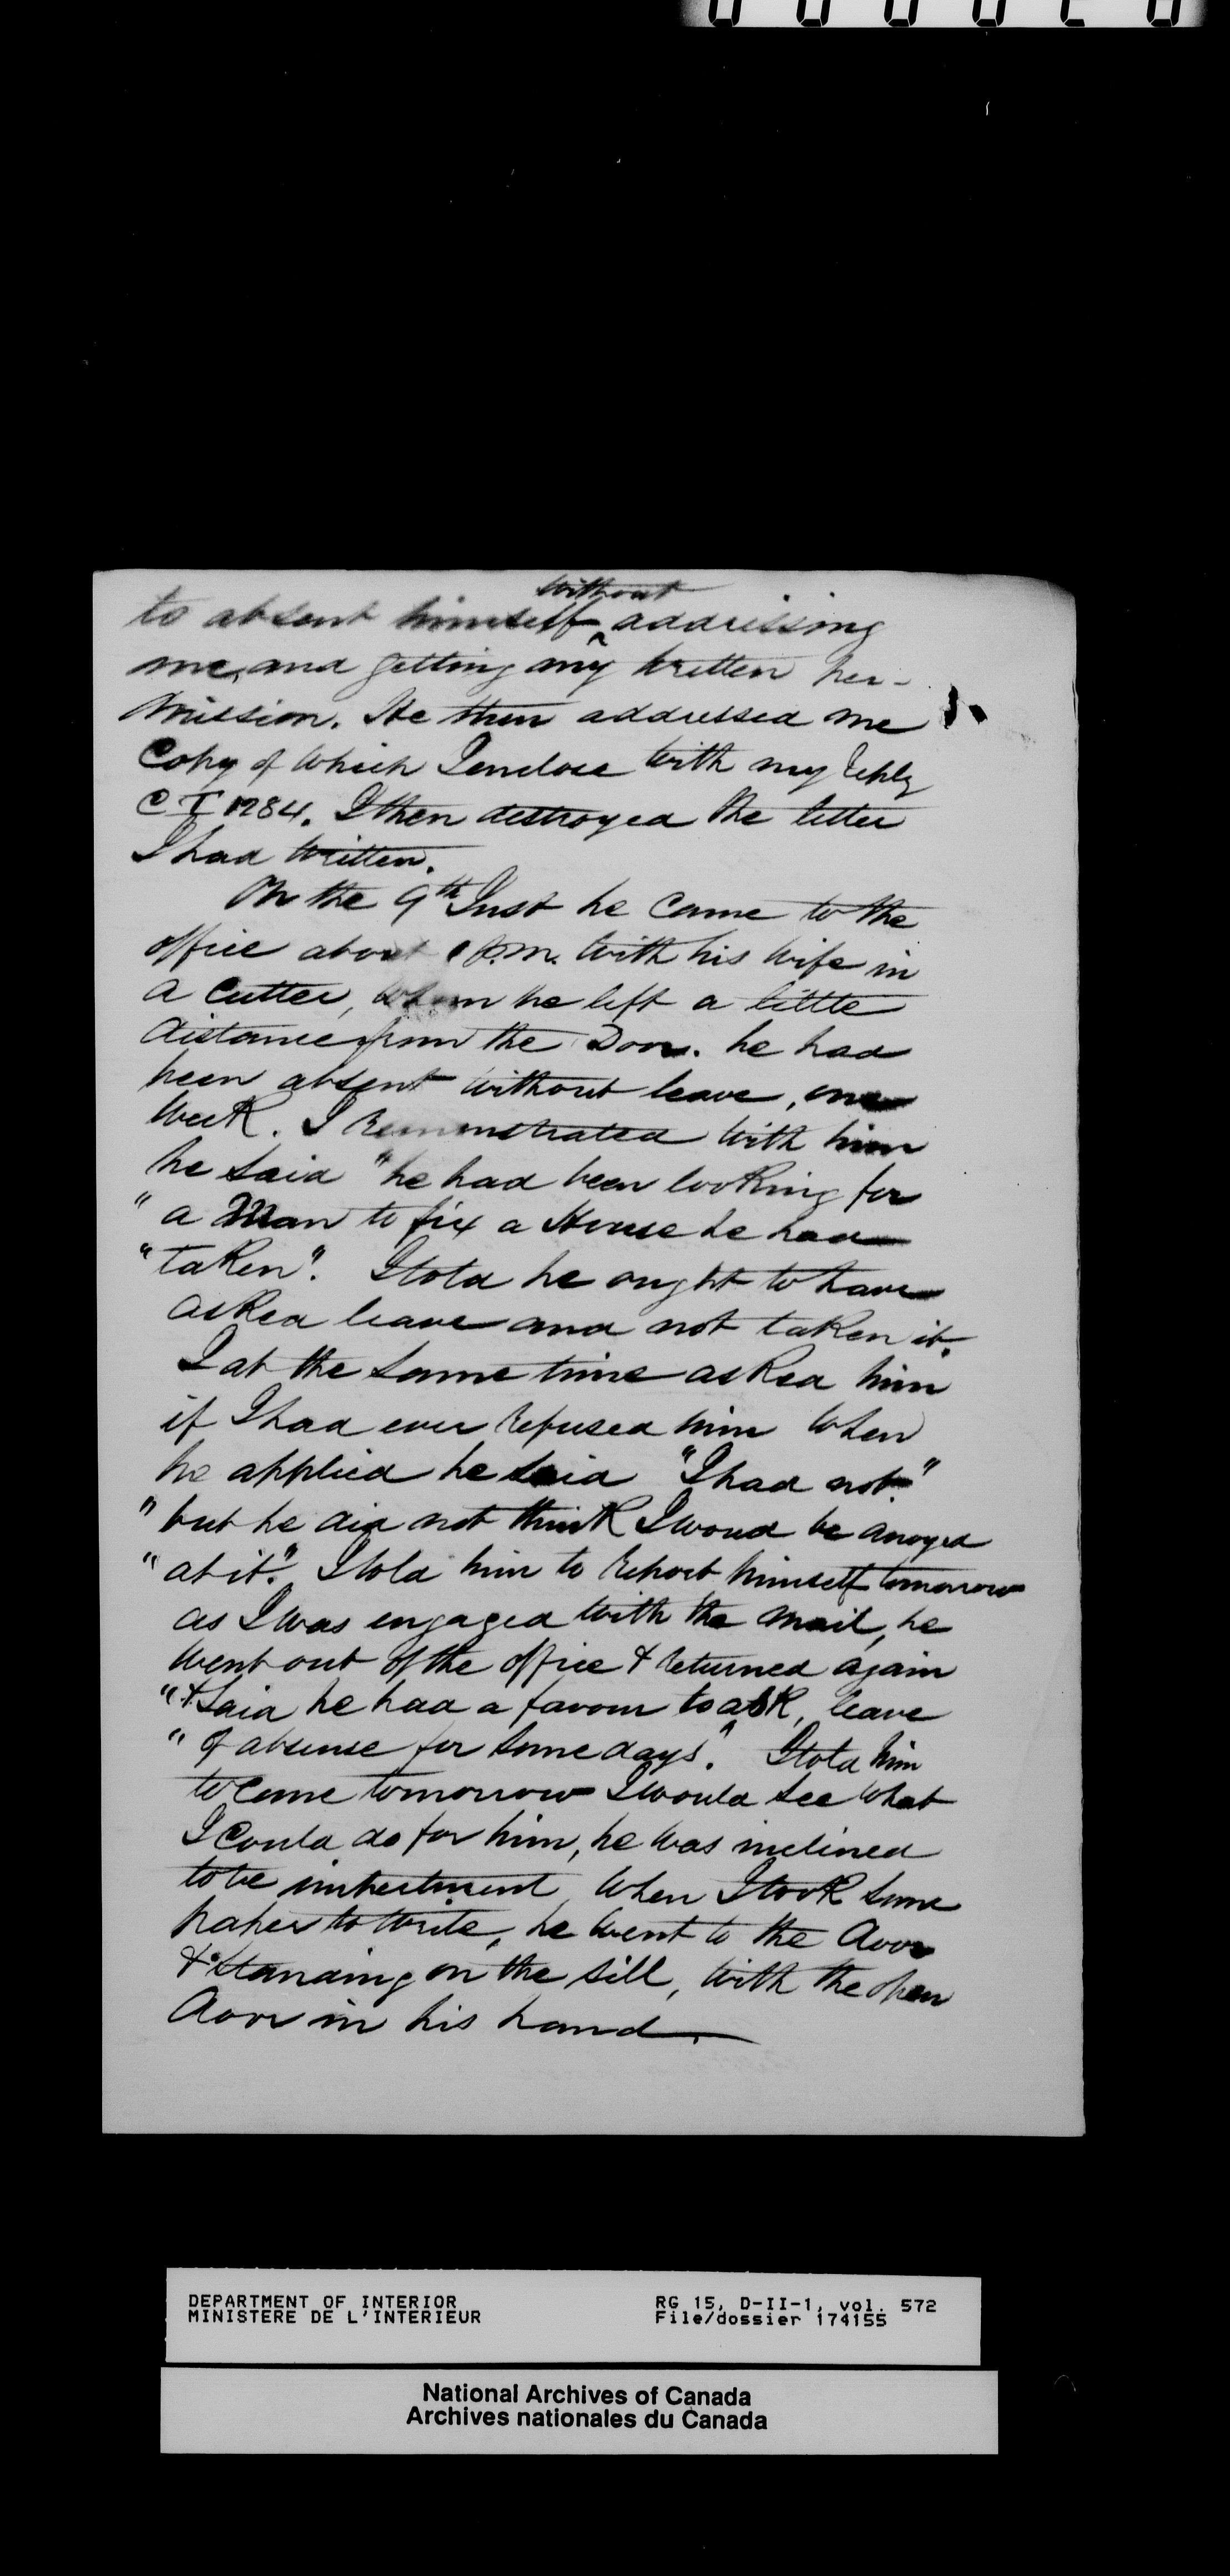 without
to absent himself ‸ addressing
me, and getting my written per-
mission. He then addressed me
Copy of which I enclose with my reply
C T 1284. I then destroyed the letter
I had written.
On the 9th Inst he came to the
office about 1 p.m. with his wife in
a Cutter, whom he left a little
distance from the Door. he had
been absent without leave, one
week. I remonstrated with him
he said "he had been looking for
" a Man to fix a House he had
" taken". I told he ought to have
asked leave and not taken it.
I at the same time asked him
if I had ever refused him when
he applied he said "I had not"
" but he did not think I woud be anoyed
" at it." I told him to report himself tomorrow
as I was engaged with the mail, he
went out of the office & returned again
"& said he had a favour to ask, leave
" of absense for some days". I told him
to come tomorrow I would see what
I could do for him, he was inclined
to be impertinent, when I took some
paper to write, he went to the door
& standing on the sill, with the open
door in his hand.
DEPARTMENT OF INTERIOR
MINISTERE DE L'INTERIEUR
RG 15, D-II-1, vol. 572
File/dossier 174155
National Archives of Canada
Archives nationales du Canada